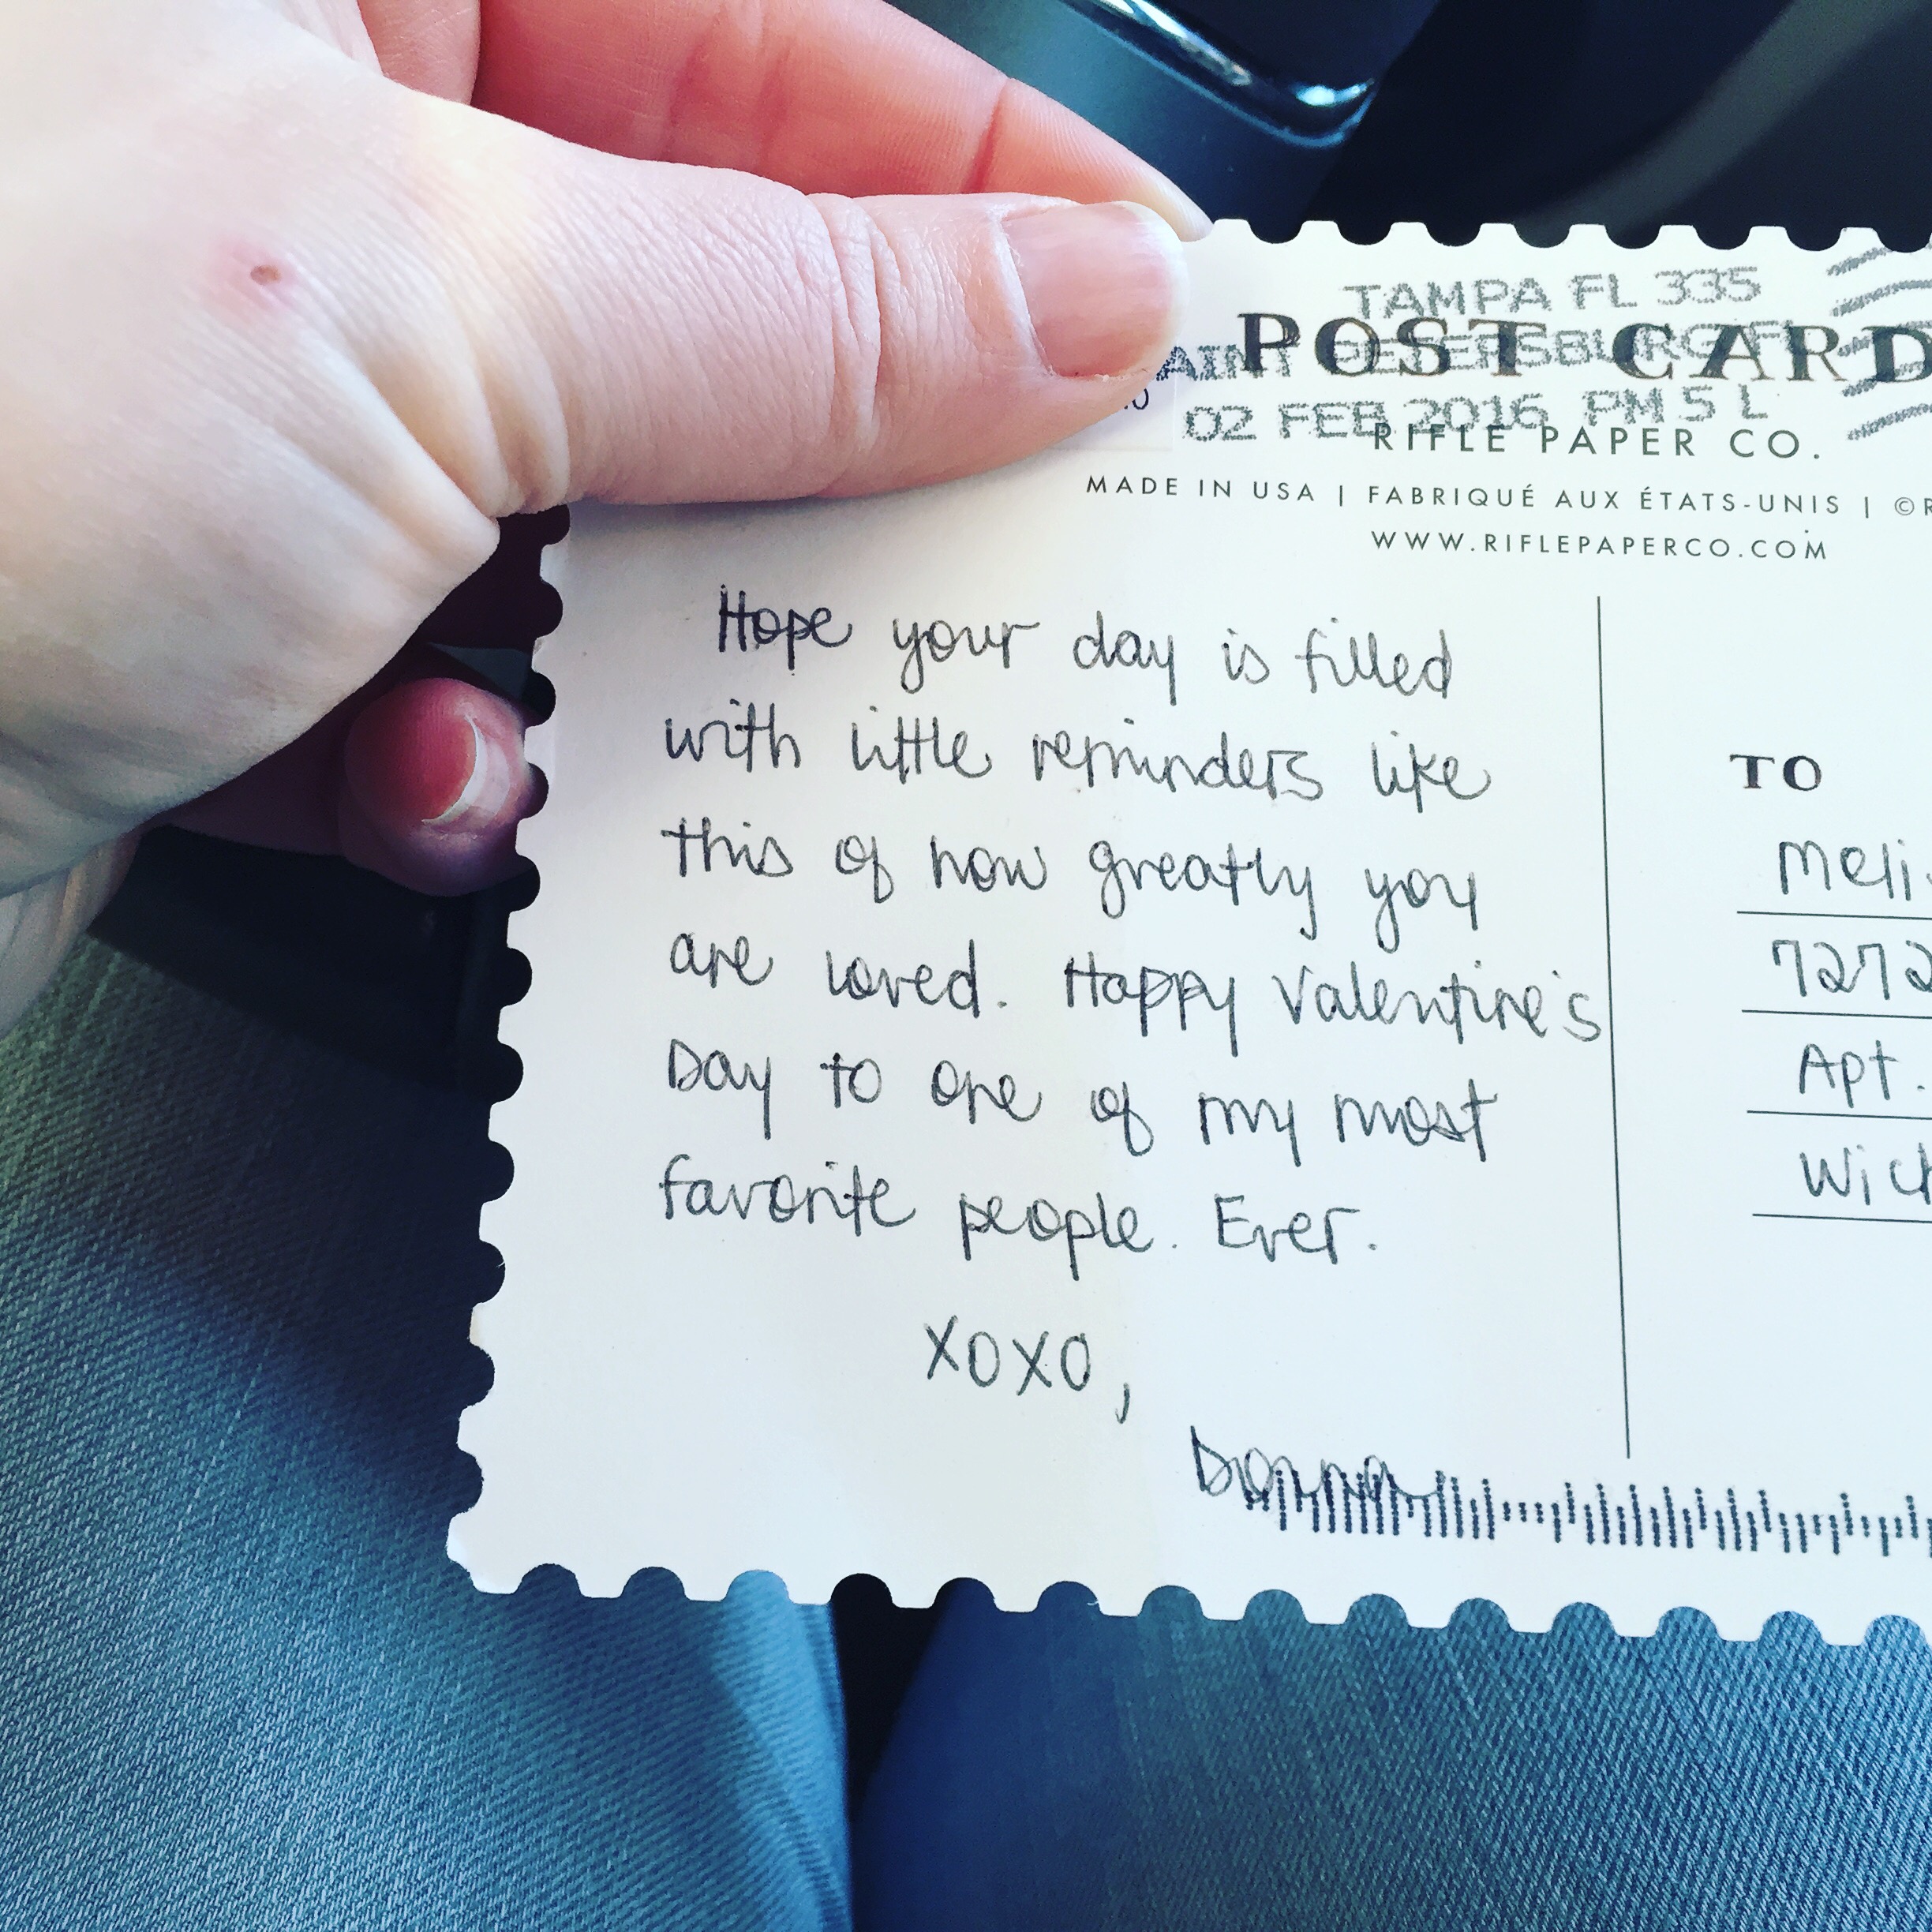 TAMPA FL 335
POST CARD
AINT PETERSBURG FL
02 FEB 2016 PM 5 L
RIFLE PAPER CO.
MADE IN USA | FABRIQUÉ AUX ÉTATS-UNIS | ©R
WWW.RIFLEPAPERCO.COM
Hope your day is filled
with little reminders like
this of how greatly you
are loved. Happy Valentine's
Day to one of my most
favorite people. Ever.
XOXO,
Donna
TO
Meli
7272
Apt.
Wich